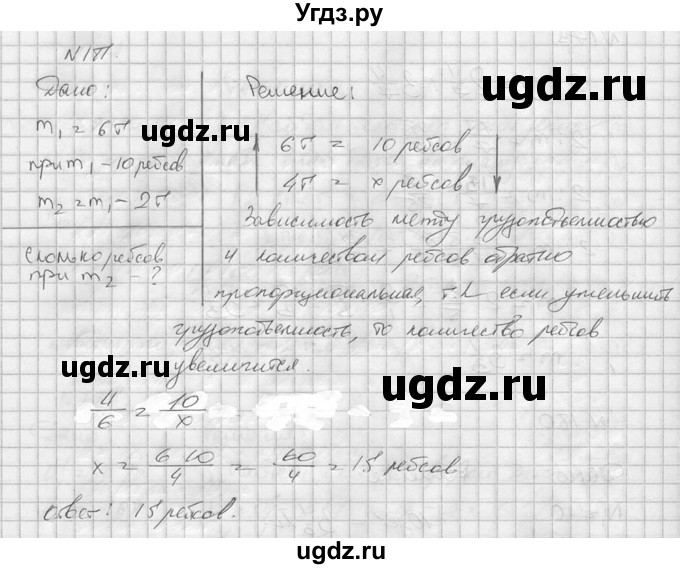 Угдз.ру
N1П.
Дано:
m₁ = 6т
при m₁ - 10 рейсов
m₂ = m₁ - 2т
сколько рейсов
при m₂ - ?
Решение:
6т = 10 рейсов
4т = x рейсов
Зависимость между
и количеством рейсов обратно
пропорциональная, т.к если уменьшить
то количество рейсов
увеличится.
4/6 = 10/x
x = 6·10/4 = 60/4 = 15 рейсов
ответ: 15 рейсов.
ugdz.ru
ugdz.ru
ugdz.ru
ugdz.ru
ugdz.ru
ugdz.ru
ugdz.ru
ugdz.ru